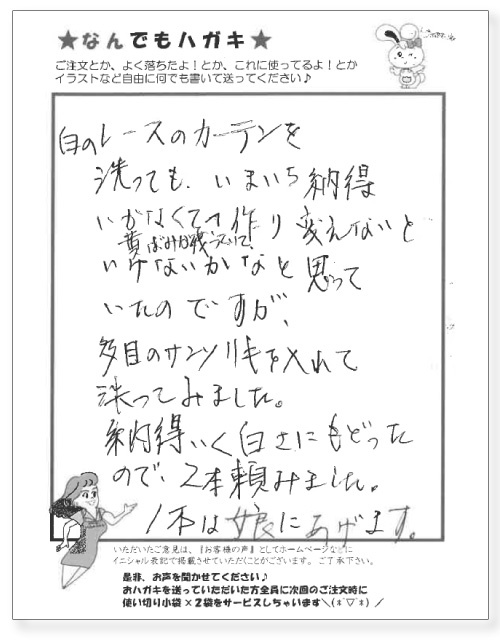 ★なんでもハガキ★
ご注文とか、よく落ちたよ！とか、これに使ってるよ！とか
イラストなど自由に何でも書いて送ってください♪
白のレースのカーテンを
洗っても、いまいち納得
いかなくて→作り変えないと
黄ばみが残っていて
いけないかなと思って
いたのですが、
多目のサンソリキを入れて
洗ってみました。
納得いく白さにもどった
ので、2本頼みました。
1本は娘にあげます。
いただいたご意見は、『お客様の声』としてホームページなどに
イニシャル表記で掲載させていただくことがございます。ご了承下さい。
是非、お声を聞かせてください♪
おハガキを送っていただいた方全員に次回のご注文時に
使い切り小袋×2袋をサービスしちゃいます＼(*´▽`*)／